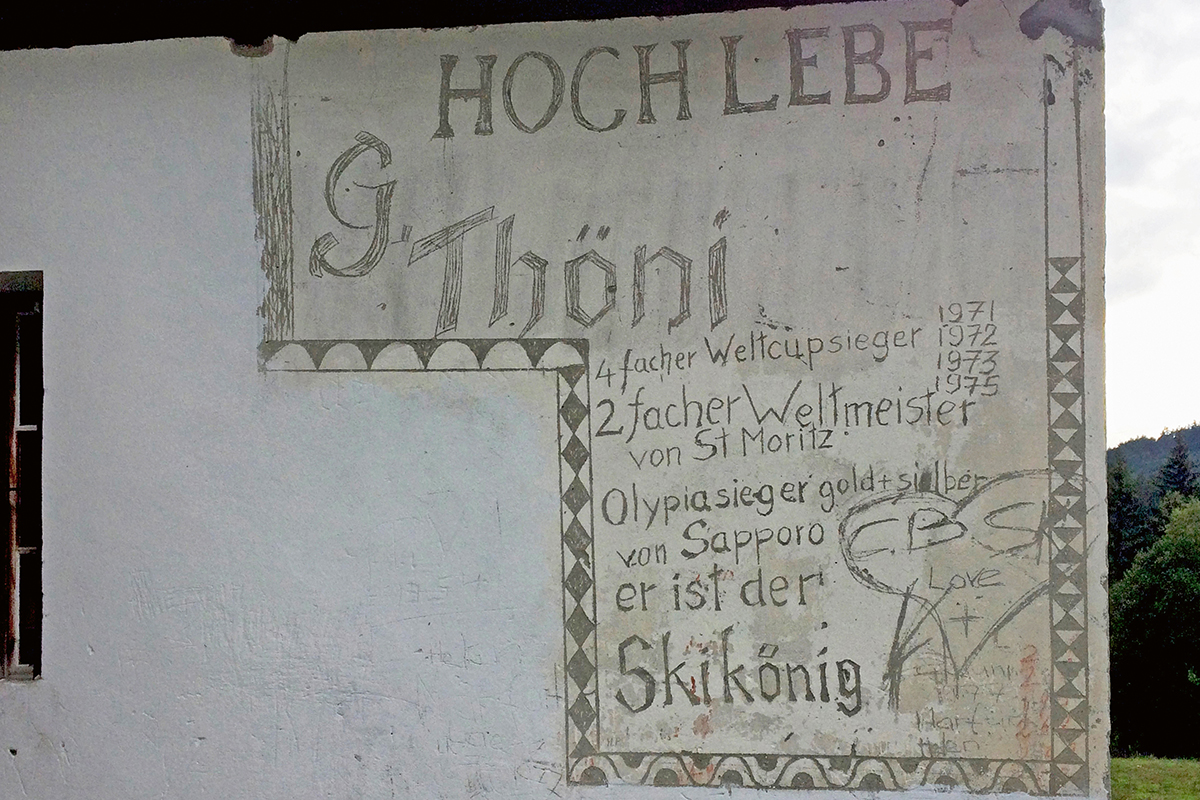 HOCH LEBE
G. Thöni
1971
4 facher Weltcupsieger 1972
1973
1975
2 facher Weltmeister
von St Moritz
Olypiasieger gold + silber
von Sapporo
er ist der
Skikönig
C.B.
Love
+